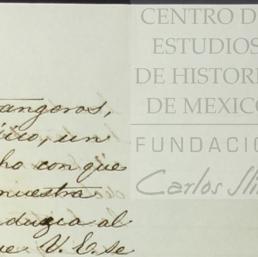 CENTRO D
ESTUDIOS
DE HISTOR
DE MEXICO
FUNDACIÓ
Carlos Sli
angeros,
ico, un
ho con que
nuestra
duzca al
que V. E. se